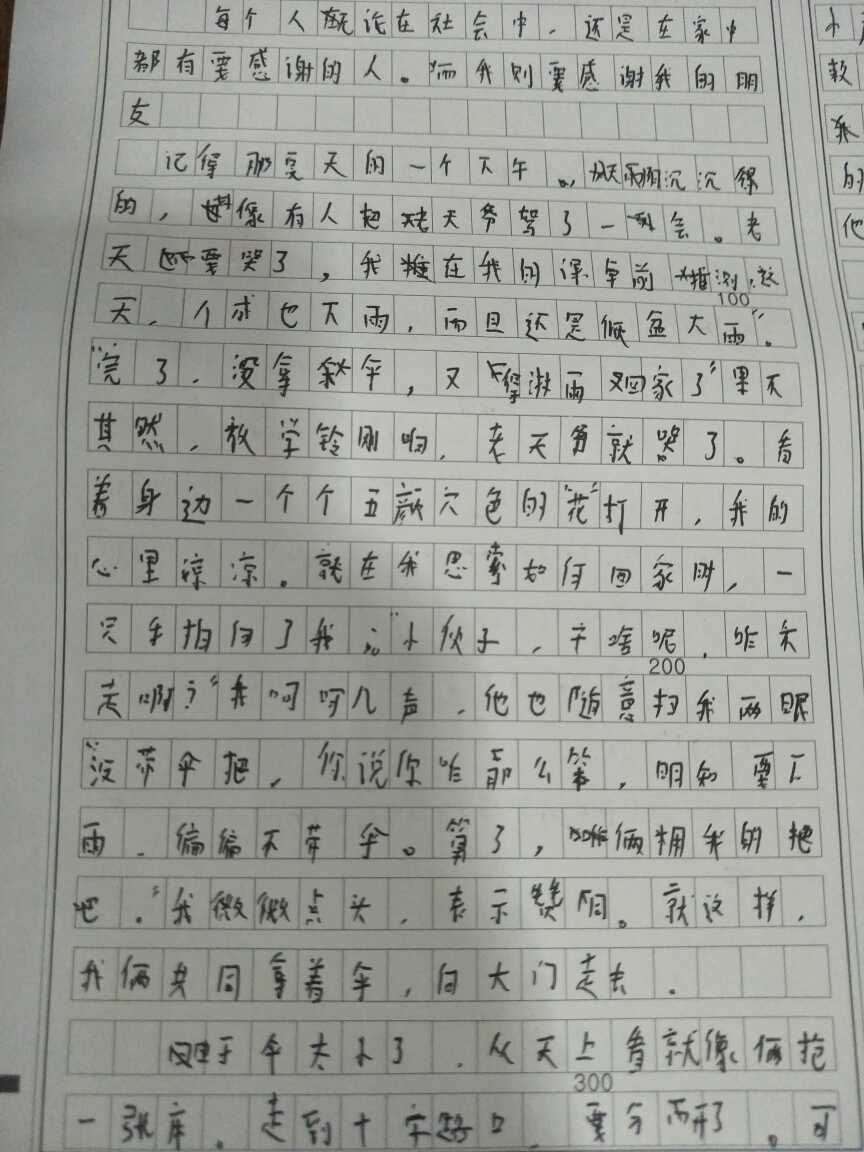 每个人无论在社会中，还是在家中
都有要感谢的人。而我则要感谢我的朋
友
记得那夏天的一个下午。天阴沉沉
的，像有人把老天爷骂了一会。老
天要哭了，我在我的课桌前推测，这
100
天，个求也下雨，而且还是倾盆大雨"。
"完了，没拿伞，又得淋雨回家了"果不
其然，放学铃刚响，老天爷就哭了。看
着身边一个个五颜六色的"花"打开，我的
心里凉凉。就在我思索如何回家时，一
只手拍向了我："小伙子，干啥呢，咋不
200
走啊？"我呵呵几声，他也随意扫我两眼
"没带伞把，你说你咋那么笨，明知要下
雨，偏偏不带伞。算了，咱俩拥我的把
吧。"我微微点头，表示赞同。就这样，
我俩共同拿着伞，向大门走去。
由于伞太小了，从天上看就像俩抢
300
一张床。走到十字路口，要分开了。可
小
救
我
的
他